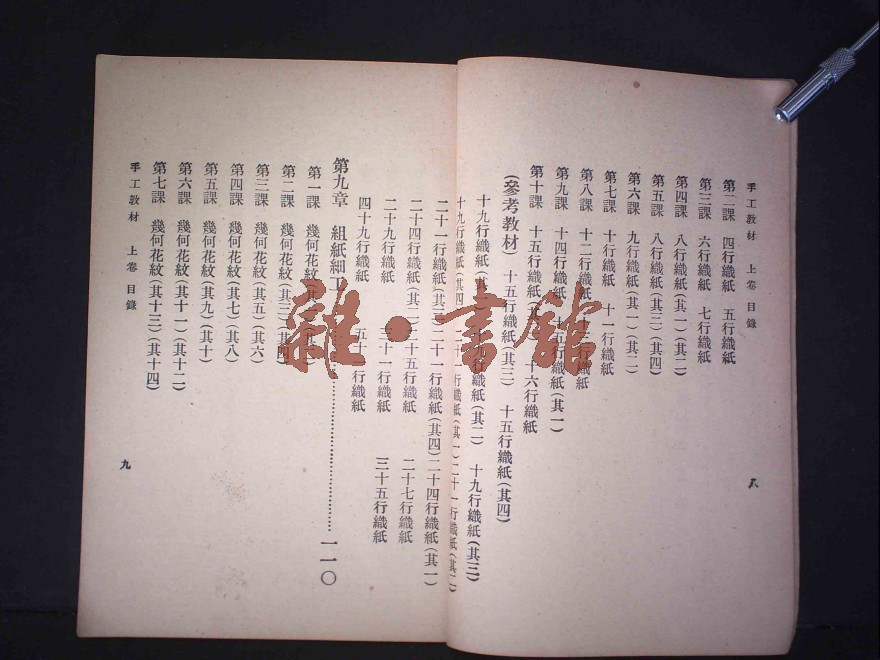 手工教材 上卷 目錄
第二課 四行織紙 五行織紙
第三課 六行織紙 七行織紙
第四課 八行織紙(其一)(其二)
第五課 八行織紙(其三)(其四)
第六課 九行織紙(其一)(其二)
第七課 十行織紙 十一行織紙
第八課 十二行織紙 十三行織紙
第九課 十四行織紙 十五行織紙(其一)
第十課 十五行織紙(其二) 十六行織紙
(參考教材) 十五行織紙(其三) 十五行織紙(其四)
十九行織紙(其一) 十九行織紙(其二) 十九行織紙(其三)
八
十九行織紙(其四) 二十一行織紙(其一) 二十一行織紙(其二)
二十一行織紙(其三) 二十一行織紙(其四) 二十四行織紙(其一)
二十四行織紙(其二) 二十五行織紙 二十七行織紙
二十九行織紙 三十一行織紙 三十五行織紙
四十九行織紙 五十一行織紙
第九章 組紙細工……一一〇
第一課 幾何花紋(其一)(其二)
第二課 幾何花紋(其三)(其四)
第三課 幾何花紋(其五)(其六)
第四課 幾何花紋(其七)(其八)
第五課 幾何花紋(其九)(其十)
第六課 幾何花紋(其十一)(其十二)
第七課 幾何花紋(其十三)(其十四)
手工教材 上卷 目錄
九
雜·書館